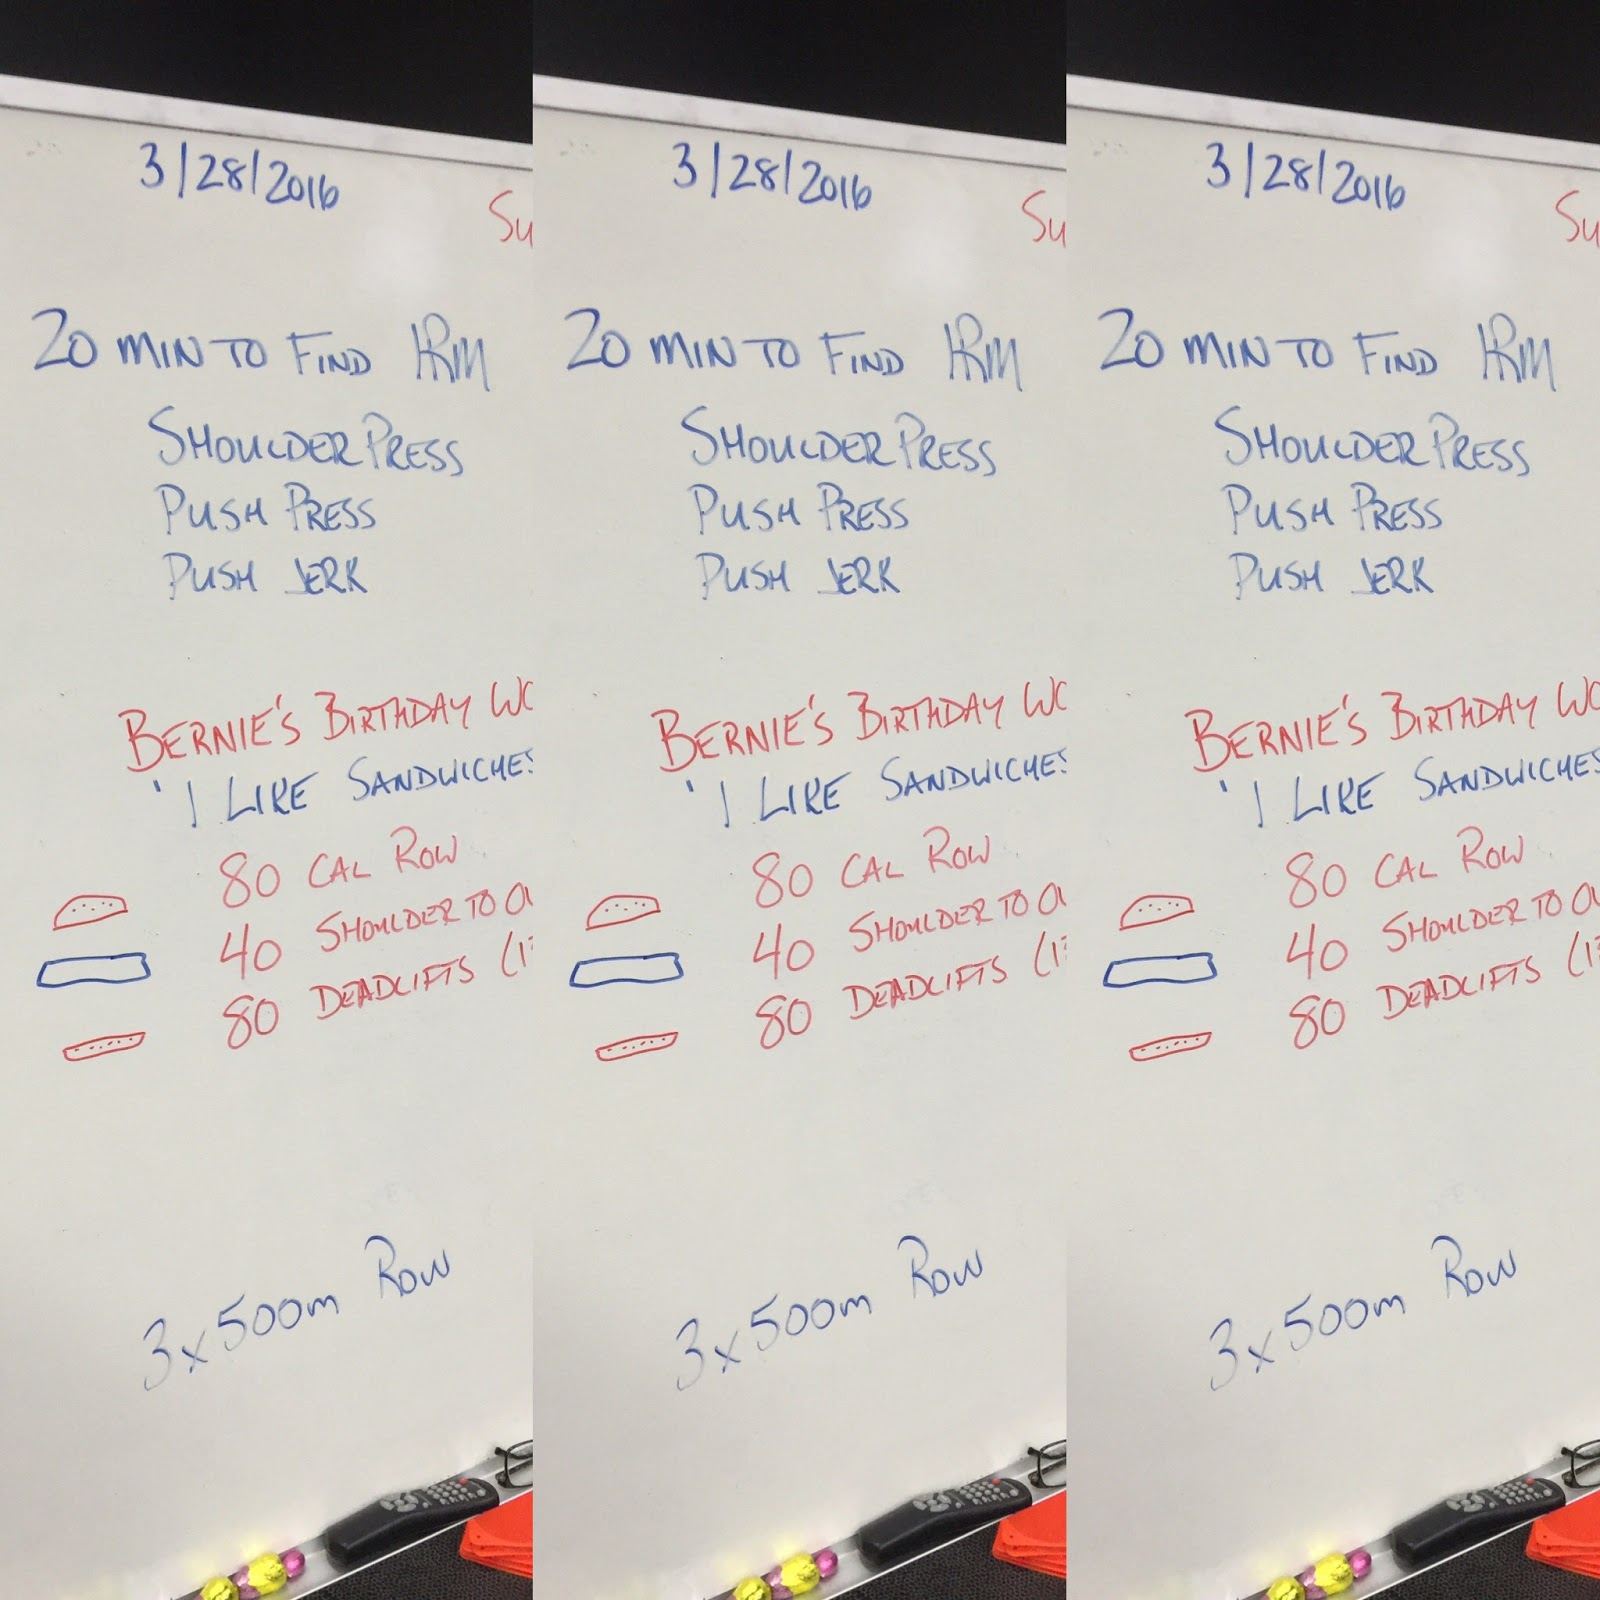 3/28/2016
Su
20 MIN TO FIND 1RM
SHOULDER PRESS
PUSH PRESS
PUSH JERK
BERNIE'S BIRTHDAY WO
'I LIKE SANDWICHES
80 CAL ROW
40 SHOULDER TO OV
80 DEADLIFTS (13
3x500m ROW
3/28/2016
Su
20 MIN TO FIND 1RM
SHOULDER PRESS
PUSH PRESS
PUSH JERK
BERNIE'S BIRTHDAY WO
'I LIKE SANDWICHES
80 CAL ROW
40 SHOULDER TO OV
80 DEADLIFTS (13
3x500m ROW
3/28/2016
Su
20 MIN TO FIND 1RM
SHOULDER PRESS
PUSH PRESS
PUSH JERK
BERNIE'S BIRTHDAY WO
'I LIKE SANDWICHES
80 CAL ROW
40 SHOULDER TO OV
80 DEADLIFTS (13
3x500m ROW